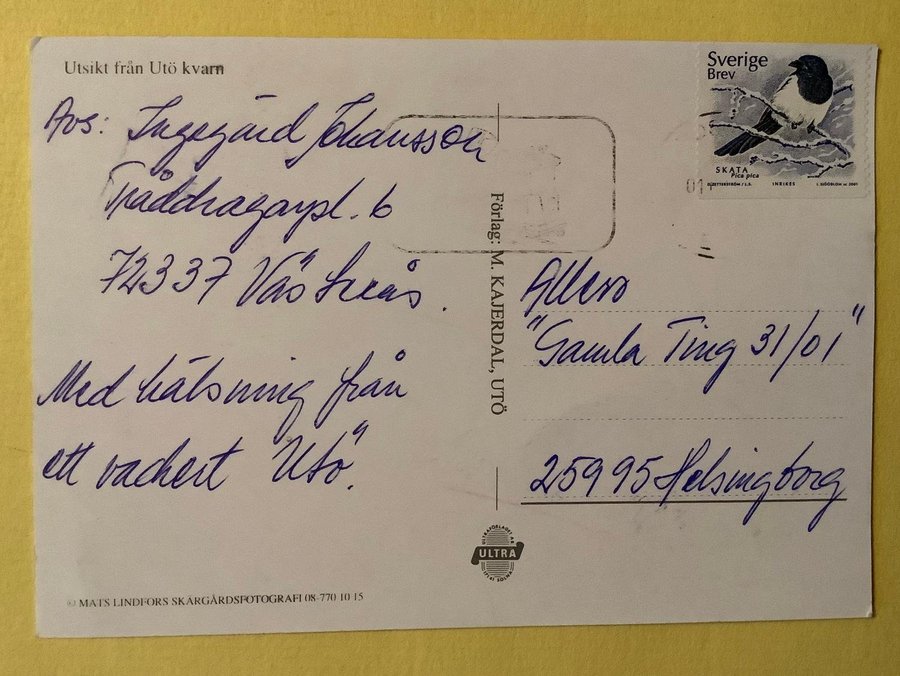 Utsikt från Utö kvarn
Avs: Ingegärd Johansson
Tråddragarpl. 6
72337 Västerås.
Med hälsning från
ett vackert Utö".
© MATS LINDFORS SKÄRGÅRDSFOTOGRAFI 08-770 10 15
Förlag: M. KAJERDAL, UTÖ
ULTRA
Sverige
Brev
SKATA
Pica pica
INRIKES
Allers
"Gamla Ting 31/01"
25995 Helsingborg